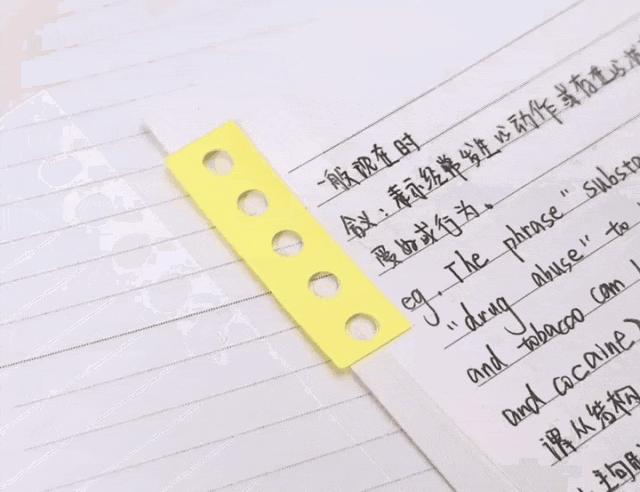 一般现在时
含义:表示经常发生的动作或存在的状
爱好或行为。
eg. The phrase "substa
"drug abuse" to
and tobacco can
and cocaine)
谓从结构